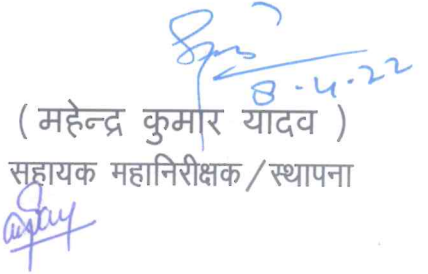 8-4-22
( महेन्द्र कुमार यादव )
सहायक महानिरीक्षक/स्थापना